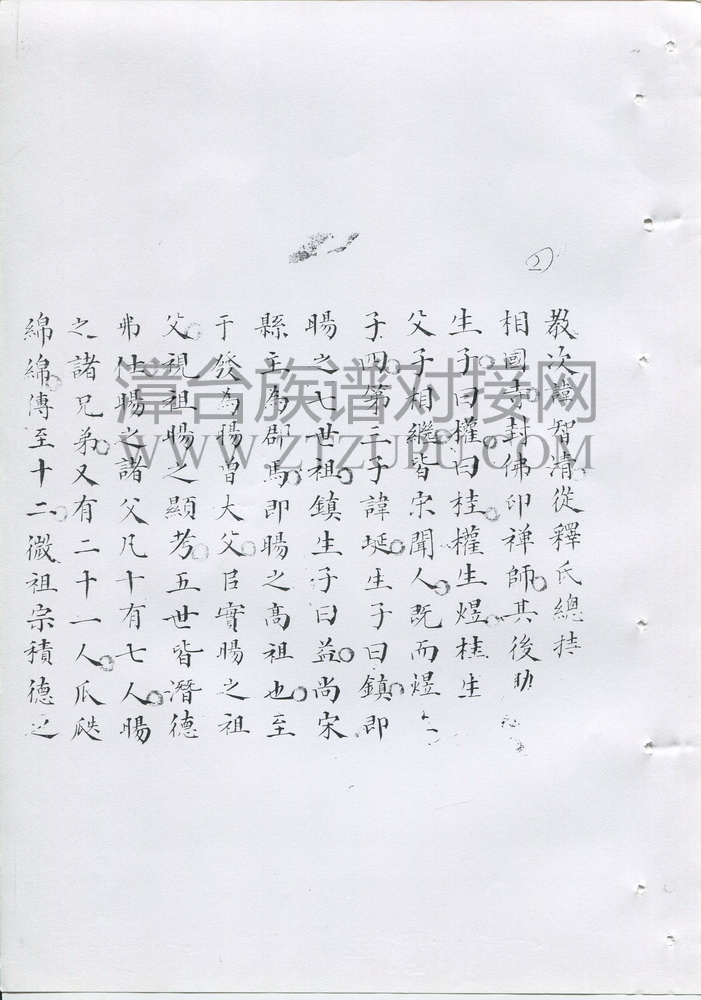 教次諱智清從釋氏總持
相國寺封佛印禪師其後助
生子曰權曰桂權生煜桂生
父子相繼皆宋聞人既而煜
子四第三子諱埏生子曰鎮即
暘之七世祖鎮生子曰益尚宋
縣主為郡馬即暘之高祖也至
于發為暘曾大父臣實暘之祖
父視祖暘之顯考五世皆潛德
弗仕暘之諸父凡十有七人暘
之諸兄弟又有二十一人瓜瓞
綿綿傳至十二微祖宗積德之
漳台族谱对接网
WWW.ZTZUPU.COM